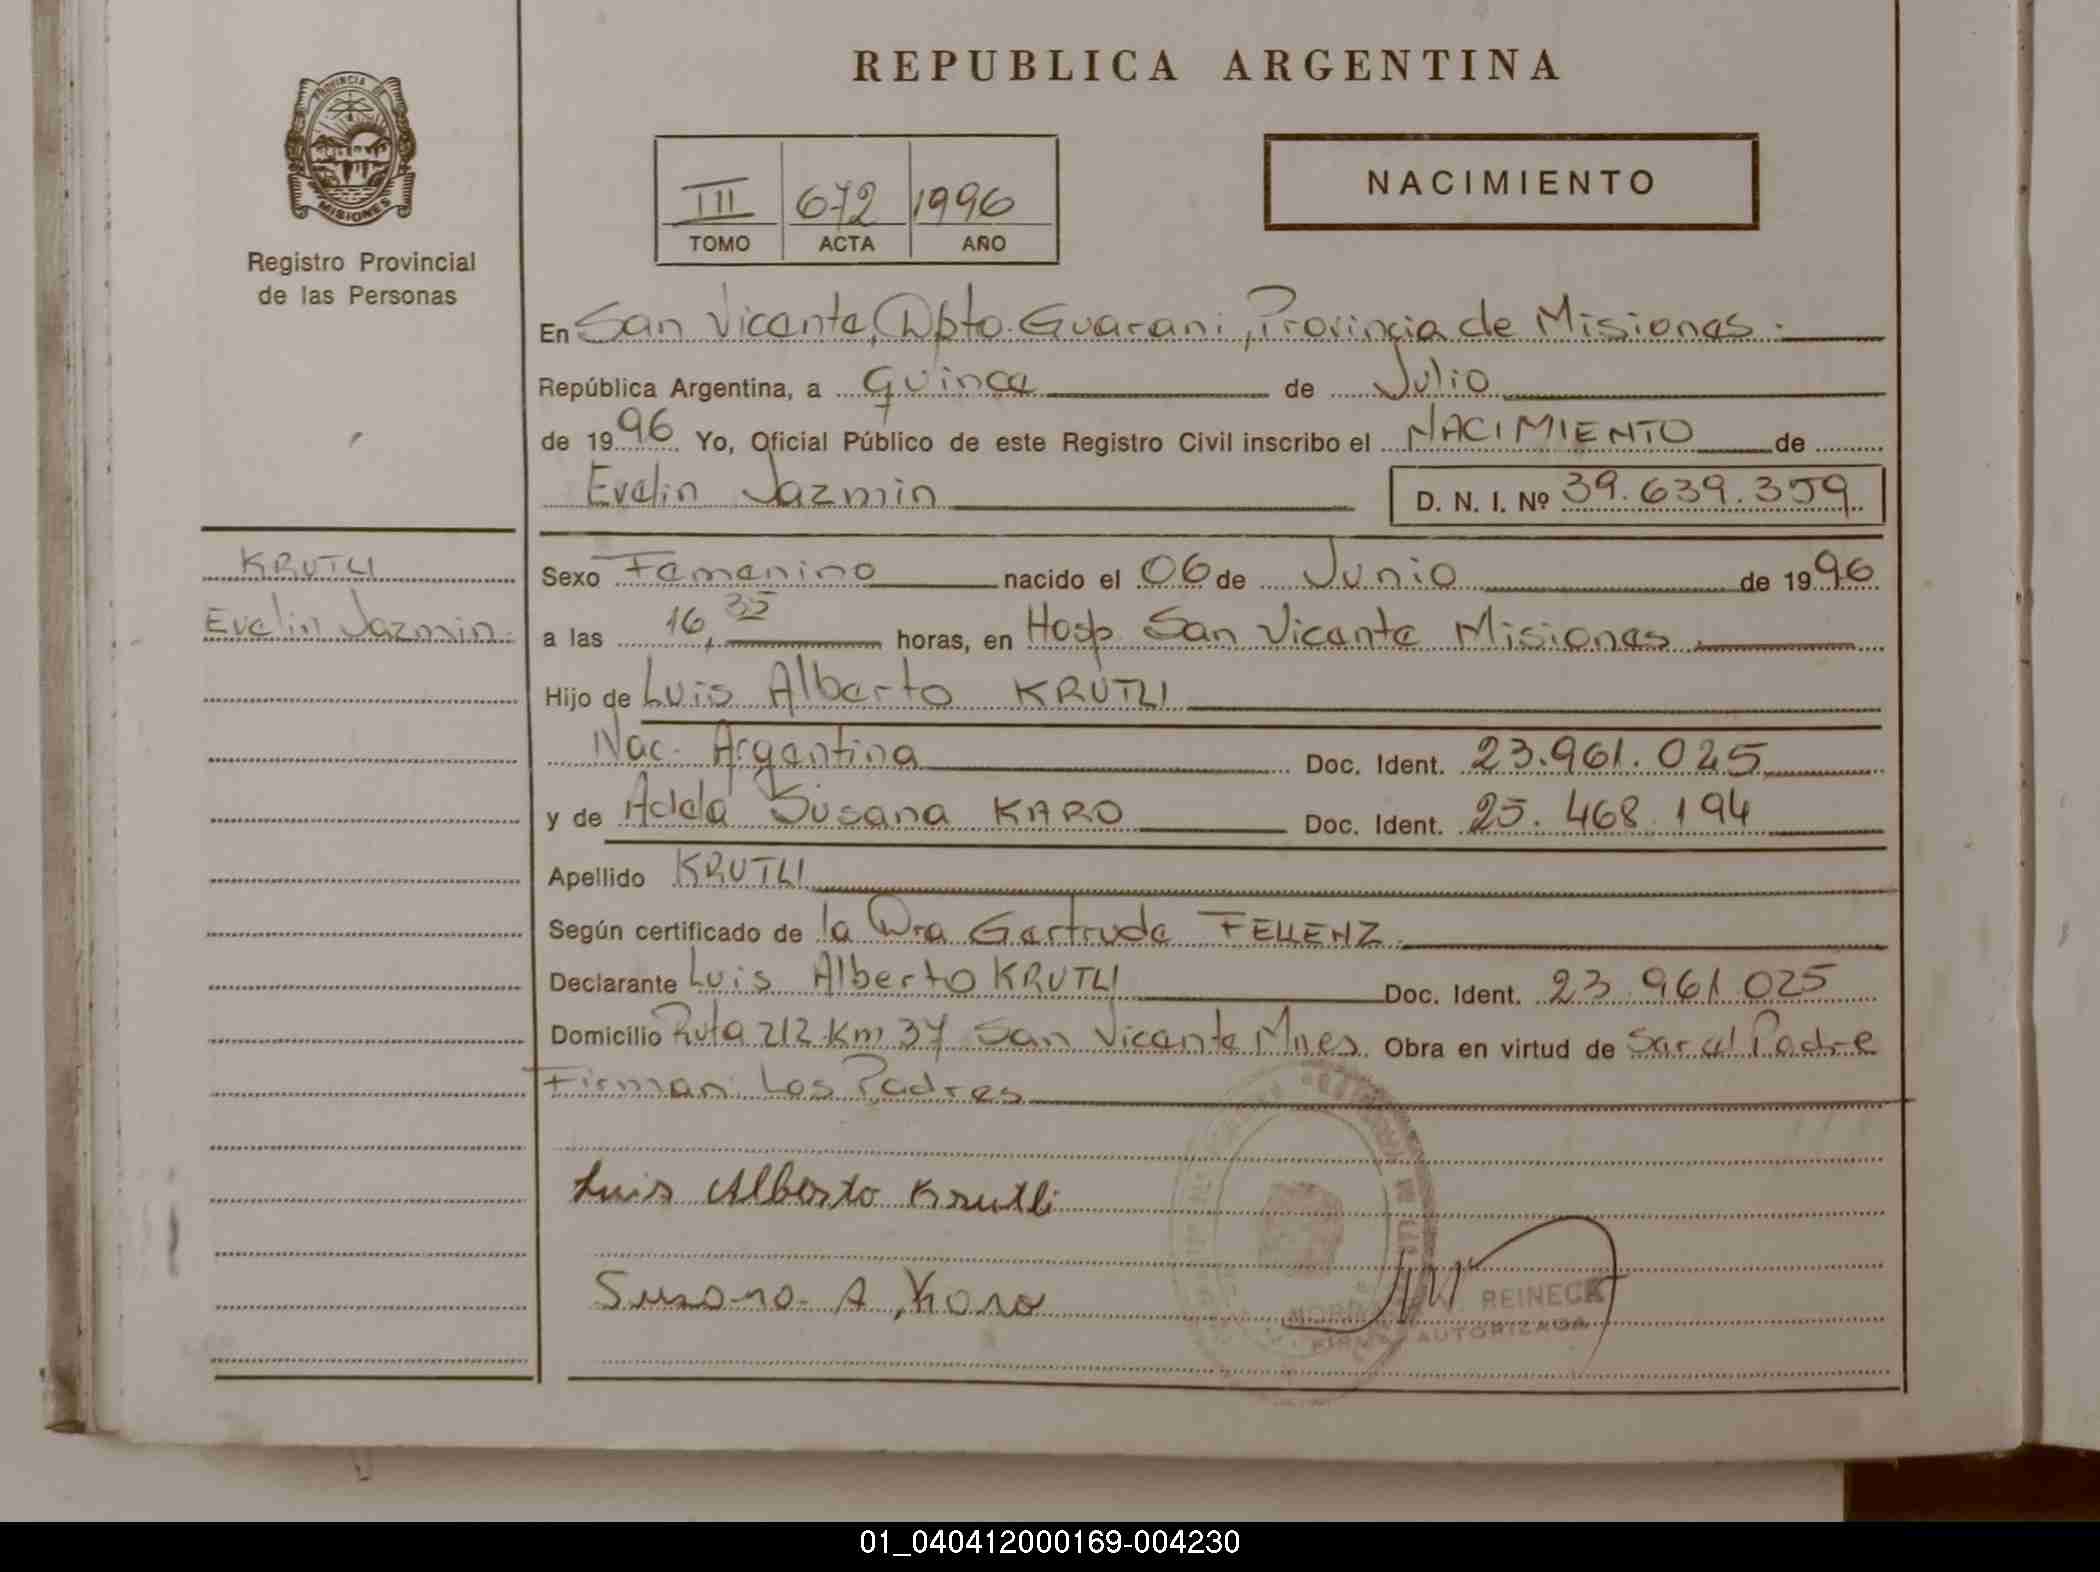 REPUBLICA ARGENTINA
PROVINCIA DE
MISIONES
Registro Provincial
de las Personas
III 672 1996
TOMO ACTA AÑO
NACIMIENTO
En San Vicente, Dpto. Guarani, Provincia de Misiones.
República Argentina, a quince de Julio
de 1996 Yo, Oficial Público de este Registro Civil inscribo el NACIMIENTO de
Evelin Jazmin D. N. I. Nº 39.639.359
KRUTLI
Evelin Jazmin
Sexo Femenino nacido el 06 de Junio de 1996
a las 16,35 horas, en Hosp. San Vicente Misiones
Hijo de Luis Alberto KRUTLI
Nac. Argentina Doc. Ident. 23.961.025
y de Adela Susana KARO Doc. Ident. 25.468.194
Apellido KRUTLI
Según certificado de la Dra Gertrude FELLENZ
Declarante Luis Alberto KRUTLI Doc. Ident. 23.961.025
Domicilio Ruta 212 Km 37 San Vicente Mnes. Obra en virtud de Ser el Padre
Firman: Los Padres
Luis Alberto Krutli
Susana A, Karo
REINECK
FIRMA AUTORIZADA
01_040412000169-004230